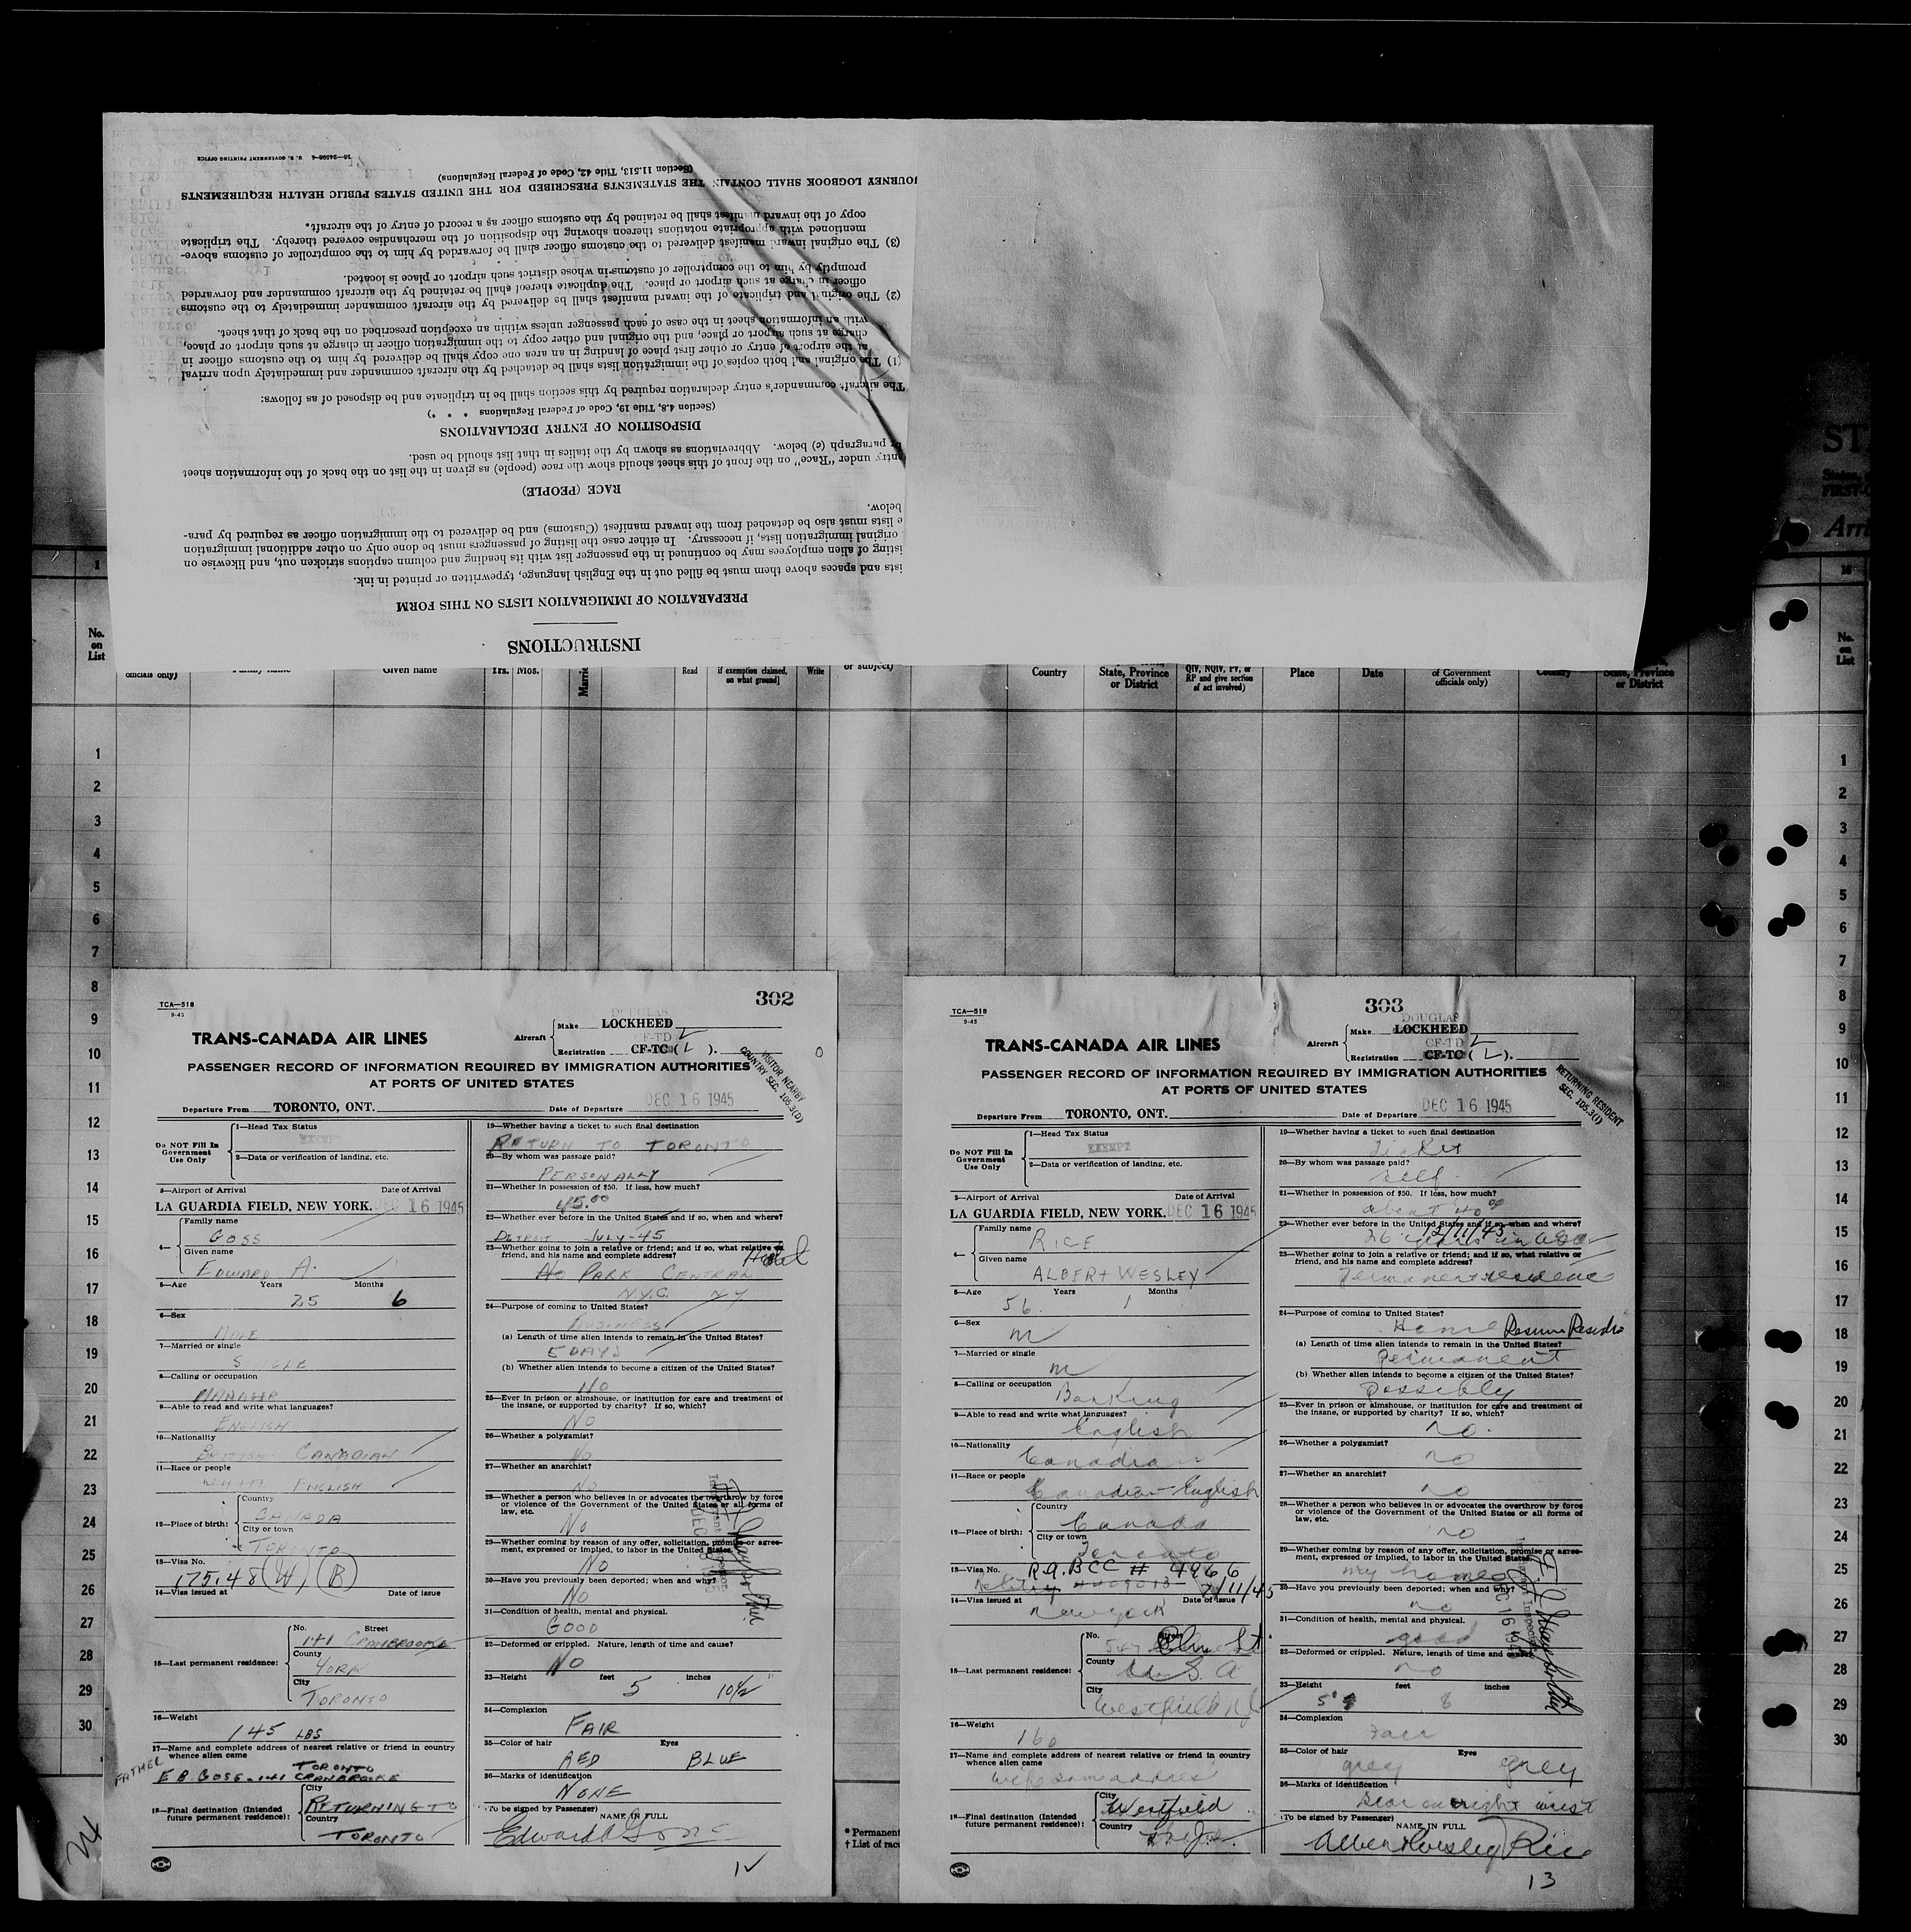 INSTRUCTIONS
PREPARATION OF IMMIGRATION LISTS ON THIS FORM
ists and spaces above them must be filled out in the English language, typewritten or printed in ink.
isting of alien employees may be continued in the passenger list with its heading and column captions stricken out, and likewise on
original immigration lists, if necessary. In either case the listing of passengers must be done only on other additional immigration
e lists must also be detached from the inward manifest (Customs) and be delivered to the immigration officer as required by para-
below.
RACE (PEOPLE)
entry under "Race" on the front of this sheet should show the race (people) as given in the list on the back of the information sheet
by paragraph (c) below. Abbreviations as shown by the italics in that list should be used.
DISPOSITION OF ENTRY DECLARATIONS
(Section 4.8, Title 19, Code of Federal Regulations * * *)
The aircraft commander's entry declaration required by this section shall be in triplicate and be disposed of as follows:
(1) The original and both copies of the immigration lists shall be detached by the aircraft commander and immediately upon arrival
at the airport of entry or other first place of landing in an area one copy shall be delivered by him to the customs officer in
charge at such airport or place, and the original and other copy to the immigration officer in charge at such airport or place,
with an information sheet in the case of each passenger unless within an exception prescribed on the back of that sheet.
(2) The original and triplicate of the inward manifest shall be delivered by the aircraft commander immediately to the customs
officer in charge at such airport or place. The duplicate thereof shall be retained by the aircraft commander and forwarded
promptly by him to the comptroller of customs in whose district such airport or place is located.
(3) The original inward manifest delivered to the customs officer shall be forwarded by him to the comptroller of customs above-
mentioned with appropriate notations thereon showing the disposition of the merchandise covered thereby. The triplicate
copy of the inward manifest shall be retained by the customs officer as a record of entry of the aircraft.
JOURNEY LOGBOOK SHALL CONTAIN THE STATEMENTS PRESCRIBED FOR THE UNITED STATES PUBLIC HEALTH REQUIREMENTS
(Section 11.513, Title 42, Code of Federal Regulations)
16—24598-4 U. S. GOVERNMENT PRINTING OFFICE
No. on List
officials only)
Family name
Given name
Yrs. Mos.
Read
if exemption claimed, on what ground]
Write
or subject)
Country
State, Province or District
QIV, NQIV, PV, or RP and give section of act involved)
Place
Date
of Government officials only)
Country
State, Province or District
No. on List
302
TCA—518
9-45
TRANS-CANADA AIR LINES
Aircraft
Make DOUGLAS LOCKHEED
Registration CF-TD CF-TC (L).
PASSENGER RECORD OF INFORMATION REQUIRED BY IMMIGRATION AUTHORITIES
AT PORTS OF UNITED STATES
VISITOR NEARBY
COUNTRY SEC. 105.3(D)
Departure From TORONTO, ONT. Date of Departure DEC 16 1945
Do NOT Fill In Government Use Only
1—Head Tax Status
EXEMPT
2—Data or verification of landing, etc.
3—Airport of Arrival Date of Arrival
LA GUARDIA FIELD, NEW YORK. DEC 16 1945
4—
Family name
GOSS
Given name
EDWARD A.
5—Age Years Months
25 6
6—Sex
MALE
7—Married or single
SINGLE
8—Calling or occupation
MANAGER
9—Able to read and write what languages?
ENGLISH
10—Nationality
BRITISH CANADIAN
11—Race or people
WHITE ENGLISH
12—Place of birth:
Country
CANADA
City or town
TORONTO
13—Visa No.
17548 (W) (B)
14—Visa issued at Date of issue
15—Last permanent residence:
No. Street
141 CRANBROOKE
County
YORK
City
TORONTO
16—Weight
145 LBS
17—Name and complete address of nearest relative or friend in country whence alien came
FATHER
TORONTO
E B. GOSS - 141 CRANBROOKE
18—Final destination (Intended future permanent residence):
City
RETURNING TO
Country
TORONTO
19—Whether having a ticket to such final destination
RETURN TO TORONTO
20—By whom was passage paid?
PERSONALLY
21—Whether in possession of $50. If less, how much?
45.00
22—Whether ever before in the United States and if so, when and where?
DETROIT JULY-45
23—Whether going to join a relative or friend; and if so, what relative or friend, and his name and complete address?
No PARK CENTRAL Hotel
N.Y.C. NY
24—Purpose of coming to United States?
BUSINESS
(a) Length of time alien intends to remain in the United States?
5 DAYS
(b) Whether alien intends to become a citizen of the United States?
No
25—Ever in prison or almshouse, or institution for care and treatment of the insane, or supported by charity? If so, which?
No
26—Whether a polygamist?
No
27—Whether an anarchist?
No
28—Whether a person who believes in or advocates the overthrow by force or violence of the Government of the United States or all forms of law, etc.
No
29—Whether coming by reason of any offer, solicitation, promise or agreement, expressed or implied, to labor in the United States.
No
30—Have you previously been deported; when and why?
No
31—Condition of health, mental and physical.
GOOD
32—Deformed or crippled. Nature, length of time and cause?
No
33—Height feet inches
5 10½"
34—Complexion
FAIR
35—Color of hair Eyes
RED BLUE
36—Marks of identification
NONE
(To be signed by Passenger)
NAME IN FULL
Edward A Goss
12
303
TCA—518
9-45
TRANS-CANADA AIR LINES
Aircraft
Make DOUGLAS LOCKHEED
Registration CF-TD CF-TC (L).
PASSENGER RECORD OF INFORMATION REQUIRED BY IMMIGRATION AUTHORITIES
AT PORTS OF UNITED STATES
RETURNING RESIDENT
SEC. 105.3(I)
Departure From TORONTO, ONT. Date of Departure DEC 16 1945
Do NOT Fill In Government Use Only
1—Head Tax Status
EXEMPT
2—Data or verification of landing, etc.
3—Airport of Arrival Date of Arrival
LA GUARDIA FIELD, NEW YORK. DEC 16 1945
4—
Family name
RICE
Given name
ALBERT WESLEY
5—Age Years Months
56 1
6—Sex
M
7—Married or single
M
8—Calling or occupation
Banking
9—Able to read and write what languages?
English
10—Nationality
Canadian
11—Race or people
Canadian-English
12—Place of birth:
Country
Canada
City or town
Toronto
13—Visa No.
R.A. BCC # 4966
14—Visa issued at Date of issue
New York 7/11/45
15—Last permanent residence:
No. Street
547 Elm St.
County
U. S. A
City
Westfield NJ
16—Weight
160
17—Name and complete address of nearest relative or friend in country whence alien came
wife same address
18—Final destination (Intended future permanent residence):
City
Westfield
Country
19—Whether having a ticket to such final destination
Ticket
20—By whom was passage paid?
self
21—Whether in possession of $50. If less, how much?
about 40.00
22—Whether ever before in the United States and if so, when and where?
26 years in USA 12/11/45
23—Whether going to join a relative or friend; and if so, what relative or friend, and his name and complete address?
Permanent residence
24—Purpose of coming to United States?
Home Resume Resid
(a) Length of time alien intends to remain in the United States?
Permanent
(b) Whether alien intends to become a citizen of the United States?
possibly
25—Ever in prison or almshouse, or institution for care and treatment of the insane, or supported by charity? If so, which?
no.
26—Whether a polygamist?
no
27—Whether an anarchist?
no
28—Whether a person who believes in or advocates the overthrow by force or violence of the Government of the United States or all forms of law, etc.
no
29—Whether coming by reason of any offer, solicitation, promise or agreement, expressed or implied, to labor in the United States.
my home
30—Have you previously been deported; when and why?
no
31—Condition of health, mental and physical.
good
32—Deformed or crippled. Nature, length of time and cause?
no
33—Height feet inches
5 8
34—Complexion
Fair
35—Color of hair Eyes
grey grey
36—Marks of identification
Scar on right wrist
(To be signed by Passenger)
NAME IN FULL
Albert Wesley Rice
13
* Permanent
† List of rac